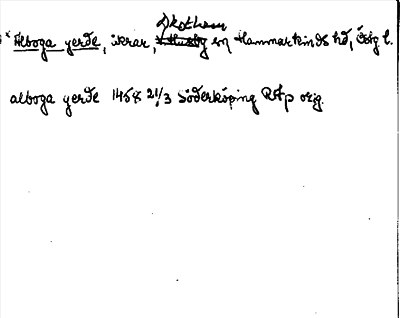 * Alboga gerde, åkrar, Skothem sn Hammarkinds hd, Ög l.
alboga gerde 1458 21/3 Söderköping RAp orig.